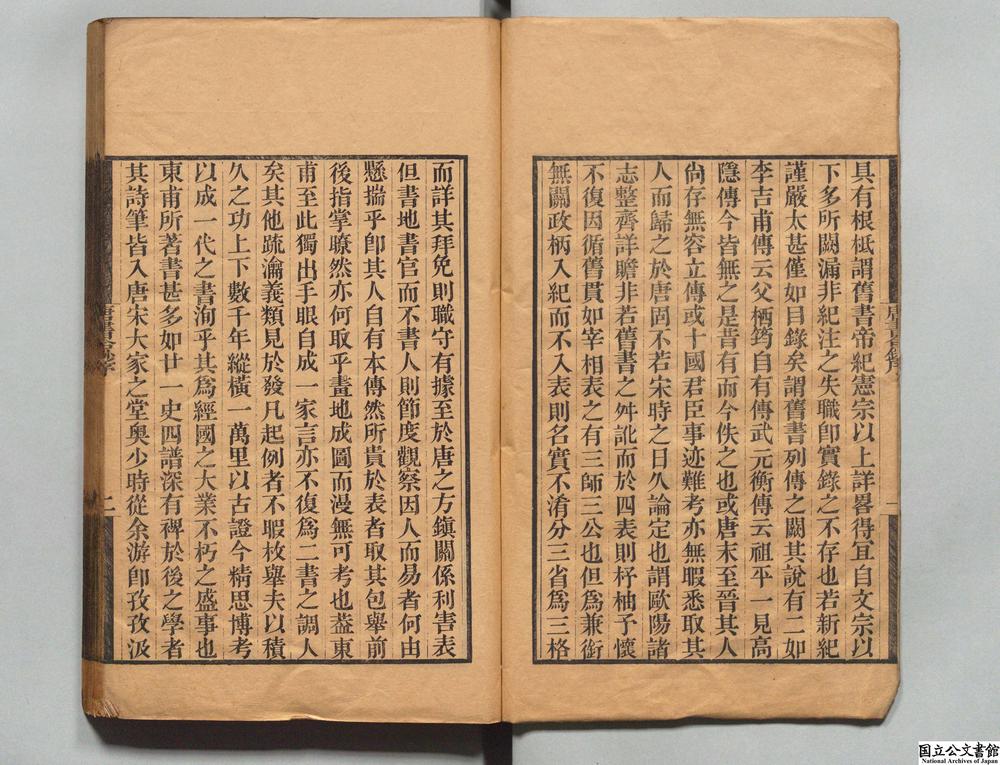 具有根柢謂舊書帝紀憲宗以上詳畧得宜自文宗以
下多所闕漏非紀注之失職卽實錄之不存也若新紀
謹嚴太甚僅如目錄矣謂舊書列傳之闕其說有二如
李吉甫傳云父栖筠自有傳武元衡傳云祖平一見高
隱傳今皆無之是昔有而今佚之也或唐末至晉其人
尙存無容立傳或十國君臣事迹難考亦無暇悉取其
人而歸之於唐固不若宋時之日久論定也謂歐陽諸
志整齊詳贍非若舊書之舛訛而於四表則杼柚予懷
不復因循舊貫如宰相表之有三師三公也但爲兼銜
無關政柄入紀而不入表則名實不淆分三省爲三格
而詳其拜免則職守有據至於唐之方鎭關係利害表
但書地書官而不書人則節度觀察因人而易者何由
懸揣乎卽其人自有本傳然所貴於表者取其包舉前
後指掌瞭然亦何取乎畫地成圖而漫無可考也葢東
甫至此獨出手眼自成一家言亦不復爲二書之調人
矣其他疏瀹義類見於發凡起例者不暇枚舉夫以積
久之功上下數千年縱橫一萬里以古證今精思博考
以成一代之書洵乎其爲經國之大業不朽之盛事也
東甫所著書甚多如廿一史四譜深有裨於後之學者
其詩筆皆入唐宋大家之堂奧少時從余游卽孜孜汲
国立公文書館
National Archives of Japan